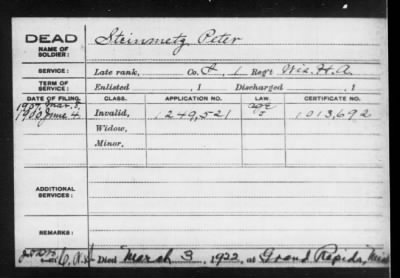 DEAD Steinmetz Peter
NAME OF SOLDIER:
SERVICE: Late rank, Co. F, 1 Reg't Wis. H.A.
TERM OF SERVICE: Enlisted , 1 Discharged , 1
DATE OF FILING. CLASS. APPLICATION NO. LAW. CERTIFICATE NO.
1907. Mar. 8,
1900 June 4. Invalid, 1249,521 1013,692
Widow,
Minor,
ADDITIONAL SERVICES:
REMARKS:
Died March 3 1922, at Grand Rapids, Mich